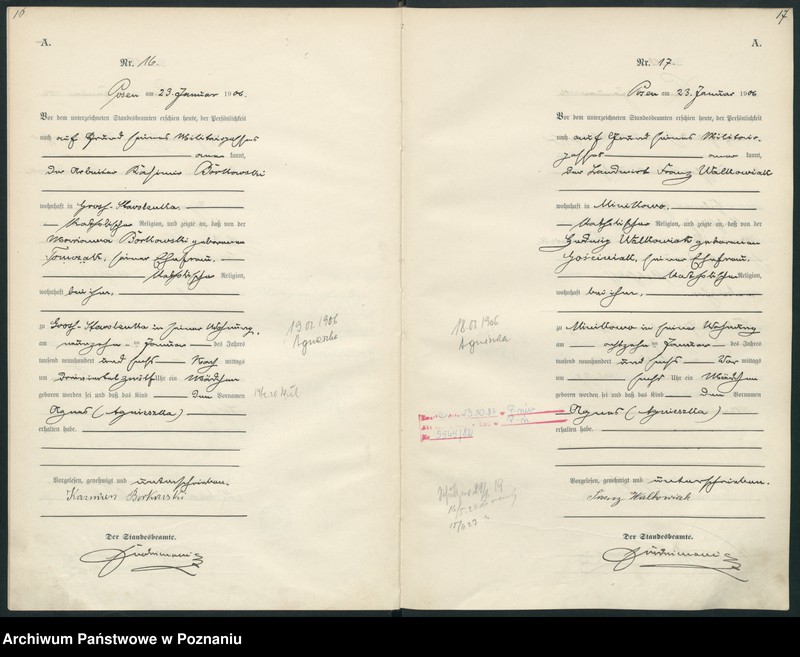 16
A.
Nr. 16.
Posen am 23. Januar 1906.
Vor dem unterzeichneten Standesbeamten erschien heute, der Persönlichkeit
nach auf Grund seines Militärpasses
aner kannt,
der Arbeiter Kasimir Borkowski
wohnhaft in Gross-Starolenka.
katholischer Religion, und zeigte an, daß von der
Marianna Borkowski geborenen
Tomczak, seiner Ehefrau,
katholischer Religion,
wohnhaft bei ihm,
zu Gross-Starolenka in seiner Wohnung,
am neunzehnten Januar des Jahres
tausend neunhundert und sechs Nach mittags
um Uhr ein Mädchen
geboren worden sei und daß das Kind den Vornamen
Agnes (Agnieszka)
erhalten habe.
Vorgelesen, genehmigt und unterschrieben.
Kazimierz Borkowski
Der Standesbeamte.
19.01.1906
Agnieszka
17
A.
Nr. 17.
Posen am 23. Januar 1906
Vor dem unterzeichneten Standesbeamten erschien heute, der Persönlichkeit
nach auf Grund seines Militär-
passes aner kannt,
der Landwirt Franz Walkowiak
wohnhaft in Minikowo,
katholischer Religion, und zeigte an, daß von der
Hedwig Walkowiak geborenen
Gościniak, seiner Ehefrau,
katholischer Religion,
wohnhaft bei ihm,
zu Minikowo in seiner Wohnung
am achtzehnten Januar des Jahres
tausend neunhundert und sechs Vor mittags
um sechs Uhr ein Mädchen
geboren worden sei und daß das Kind den Vornamen
Agnes (Agnieszka)
erhalten habe.
Vorgelesen, genehmigt und unterschrieben.
Franz Walkowiak
Der Standesbeamte.
18.01.1906
Agnieszka
Archiwum Państwowe w Poznaniu